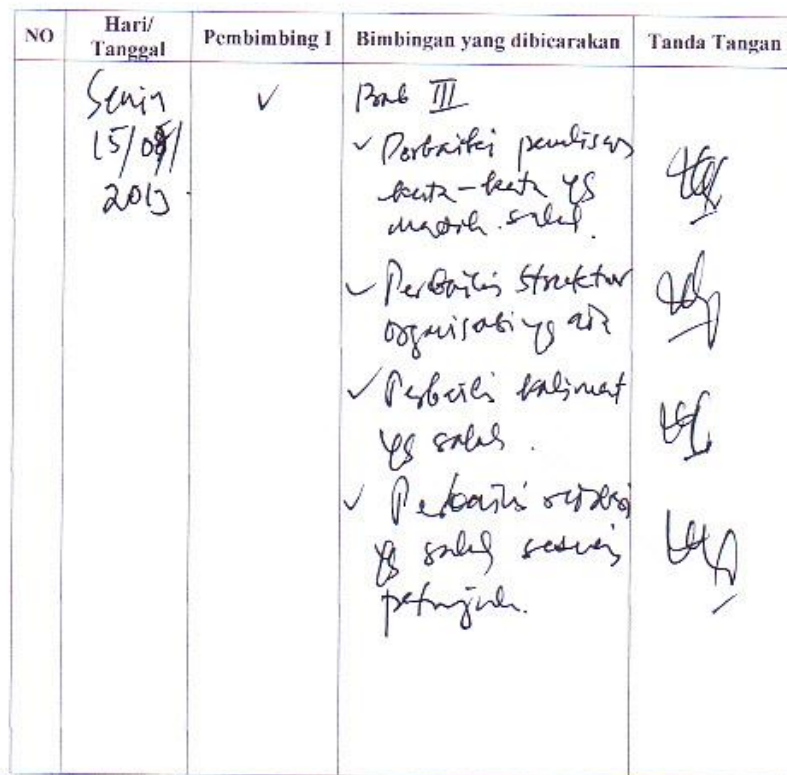 NO Hari/ Tanggal Pembimbing I Bimbingan yang dibicarakan Tanda Tangan
Senin ✓ Bab III
15/08/ ✓ Perbaiki penulisan
2013 kata-kata yg
masih salah.
✓ Perbaiki Struktur
organisasi yg ada
✓ Perbaiki kalimat
yg salah.
✓ Perbaiki redaksi
yg salah sesuai
petunjuk.